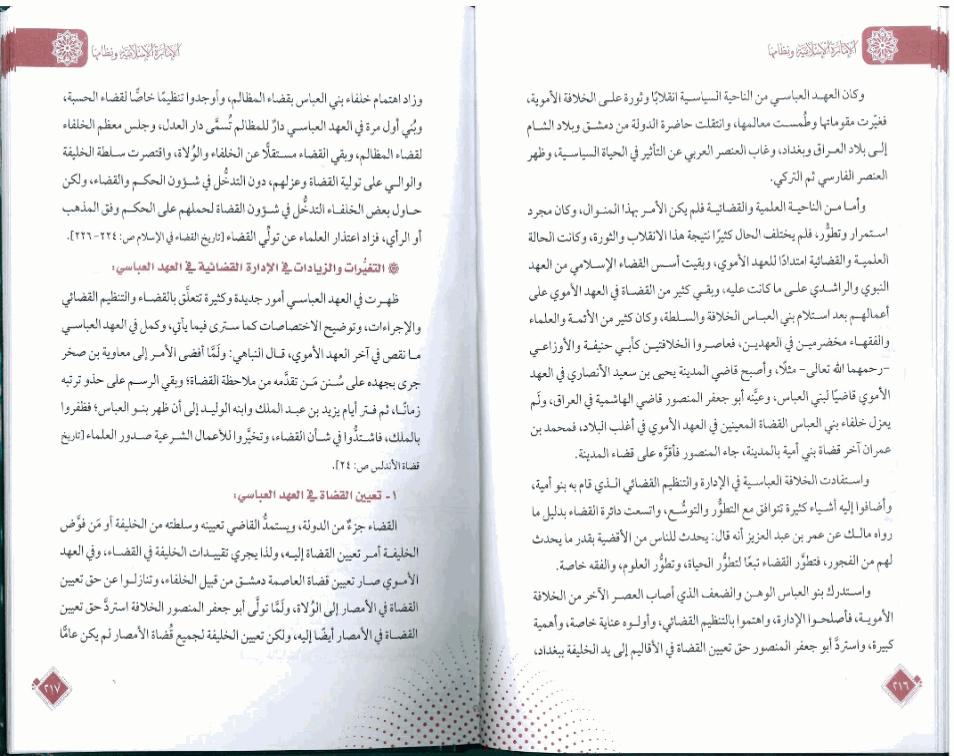 الإمارة الإسلامية ونظامها
وكان العهد العباسي من الناحية السياسية انقلابًا وثورة على الخلافة الأموية،
فغيّرت مقوماتها وطُمست معالمها، وانتقلت حاضرة الدولة من دمشق وبلاد الشام
إلى بلاد العراق وبغداد، وغاب العنصر العربي عن التأثير في الحياة السياسية، وظهر
العنصر الفارسي ثم التركي.
وأما من الناحية العلمية والقضائية فلم يكن الأمر بهذا المنوال، وكان مجرد
استمرار وتطوُّر، فلم يختلف الحال كثيرًا نتيجة هذا الانقلاب والثورة، وكانت الحالة
العلمية والقضائية امتدادًا للعهد الأموي، وبقيت أسس القضاء الإسلامي من العهد
النبوي والراشدي على ما كانت عليه، وبقي كثير من القضاة في العهد الأموي على
أعمالهم بعد استلام بني العباس الخلافة والسلطة، وكان كثير من الأئمة والعلماء
والفقهاء مخضرمين في العهدين، فعاصروا الخلافتين كأبي حنيفة والأوزاعي
-رحمهما الله تعالى- مثلًا، وأصبح قاضي المدينة يحيى بن سعيد الأنصاري في العهد
الأموي قاضيًا لبني العباس، وعيَّنه أبو جعفر المنصور قاضي الهاشمية في العراق، ولَم
يعزل خلفاء بني العباس القضاة المعينين في العهد الأموي في أغلب البلاد، فمحمد بن
عمران آخر قضاة بني أمية بالمدينة، جاء المنصور فأقرَّه على قضاء المدينة.
واستفادت الخلافة العباسية في الإدارة والتنظيم القضائي الذي قام به بنو أمية،
وأضافوا إليه أشياء كثيرة تتوافق مع التطوُّر والتوسُّع، واتسعت دائرة القضاء بدليل ما
رواه مالك عن عمر بن عبد العزيز أنه قال: يحدث للناس من الأقضية بقدر ما يحدث
لهم من الفجور، فتطوَّر القضاء تبعًا لتطوُّر الحياة، وتطوُّر العلوم، والفقه خاصة.
واستدرك بنو العباس الوهن والضعف الذي أصاب العصر الآخر من الخلافة
الأموية، فأصلحوا الإدارة، واهتموا بالتنظيم القضائي، وأولوه عناية خاصة، وأهمية
كبيرة، واستردَّ أبو جعفر المنصور حق تعيين القضاة في الأقاليم إلى يد الخليفة ببغداد،
٢١٦
الإمارة الإسلامية ونظامها
وزاد اهتمام خلفاء بني العباس بقضاء المظالم، وأوجدوا تنظيمًا خاصًّا لقضاء الحسبة،
وبُني أول مرة في العهد العباسي دارٌ للمظالم تُسمَّى دار العدل، وجلس معظم الخلفاء
لقضاء المظالم، وبقي القضاء مستقلًّا عن الخلفاء والوُلاة، واقتصرت سلطة الخليفة
والوالي على تولية القضاة وعزلهم، دون التدخُّل في شؤون الحكم والقضاء، ولكن
حاول بعض الخلفاء التدخُّل في شؤون القضاة لحملهم على الحكم وفق المذهب
أو الرأي، فزاد اعتذار العلماء عن تولِّي القضاء [تاريخ القضاء في الإسلام ص: ٢٢٤-٢٢٦].
التغيُّرات والزيادات في الإدارة القضائية في العهد العباسي:
ظهرت في العهد العباسي أمور جديدة وكثيرة تتعلَّق بالقضاء والتنظيم القضائي
والإجراءات، وتوضيح الاختصاصات كما سترى فيما يأتي، وكمل في العهد العباسي
ما نقص في آخر العهد الأموي، قال النباهي: ولَمَّا أفضى الأمر إلى معاوية بن صخر
جرى بجهده على سُنن مَن تقدَّمه من ملاحظة القضاة؛ وبقي الرسم على حذو ترتبه
زمانًا، ثم فتر أيام يزيد بن عبد الملك وابنه الوليد إلى أن ظهر بنو العباس؛ فظفروا
بالملك، فاشتدُّوا في شأن القضاء، وتخيَّروا للأعمال الشرعية صدور العلماء [تاريخ
قضاة الأندلس ص: ٢٤].
١- تعيين القضاة في العهد العباسي:
القضاء جزءٌ من الدولة، ويستمدُّ القاضي تعيينه وسلطته من الخليفة أو مَن فوَّض
الخليفة أمر تعيين القضاة إليه، ولذا يجري تقييدات الخليفة في القضاء، وفي العهد
الأموي صار تعيين قضاة العاصمة دمشق من قبيل الخلفاء، وتنازلوا عن حق تعيين
القضاة في الأمصار إلى الوُلاة، ولَمَّا تولَّى أبو جعفر المنصور الخلافة استردَّ حق تعيين
القضاة في الأمصار أيضًا إليه، ولكن تعيين الخليفة لجميع قُضاة الأمصار لم يكن عامًّا
٢١٧